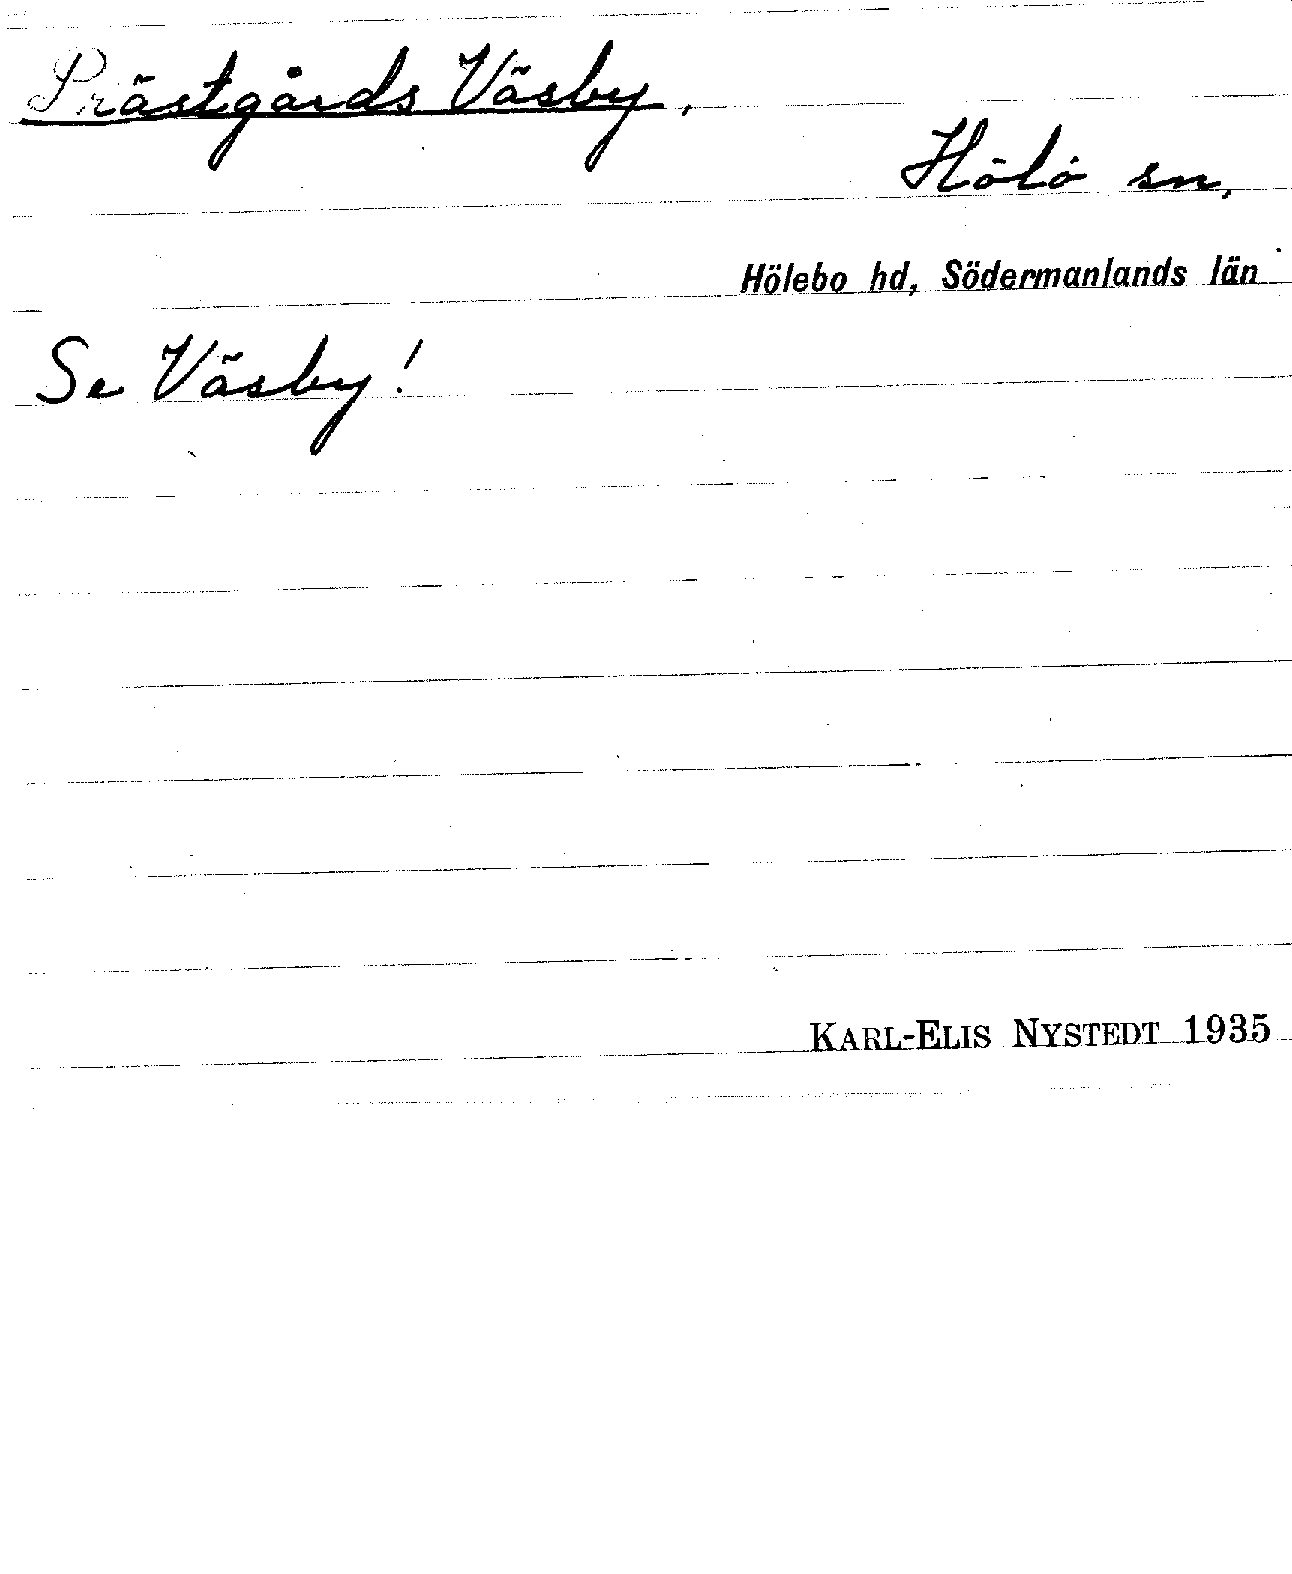 Prästgårds Väsby,
Hölö sn,
Hölebo hd, Södermanlands län
Se Väsby!
KARL-ELIS NYSTEDT 1935